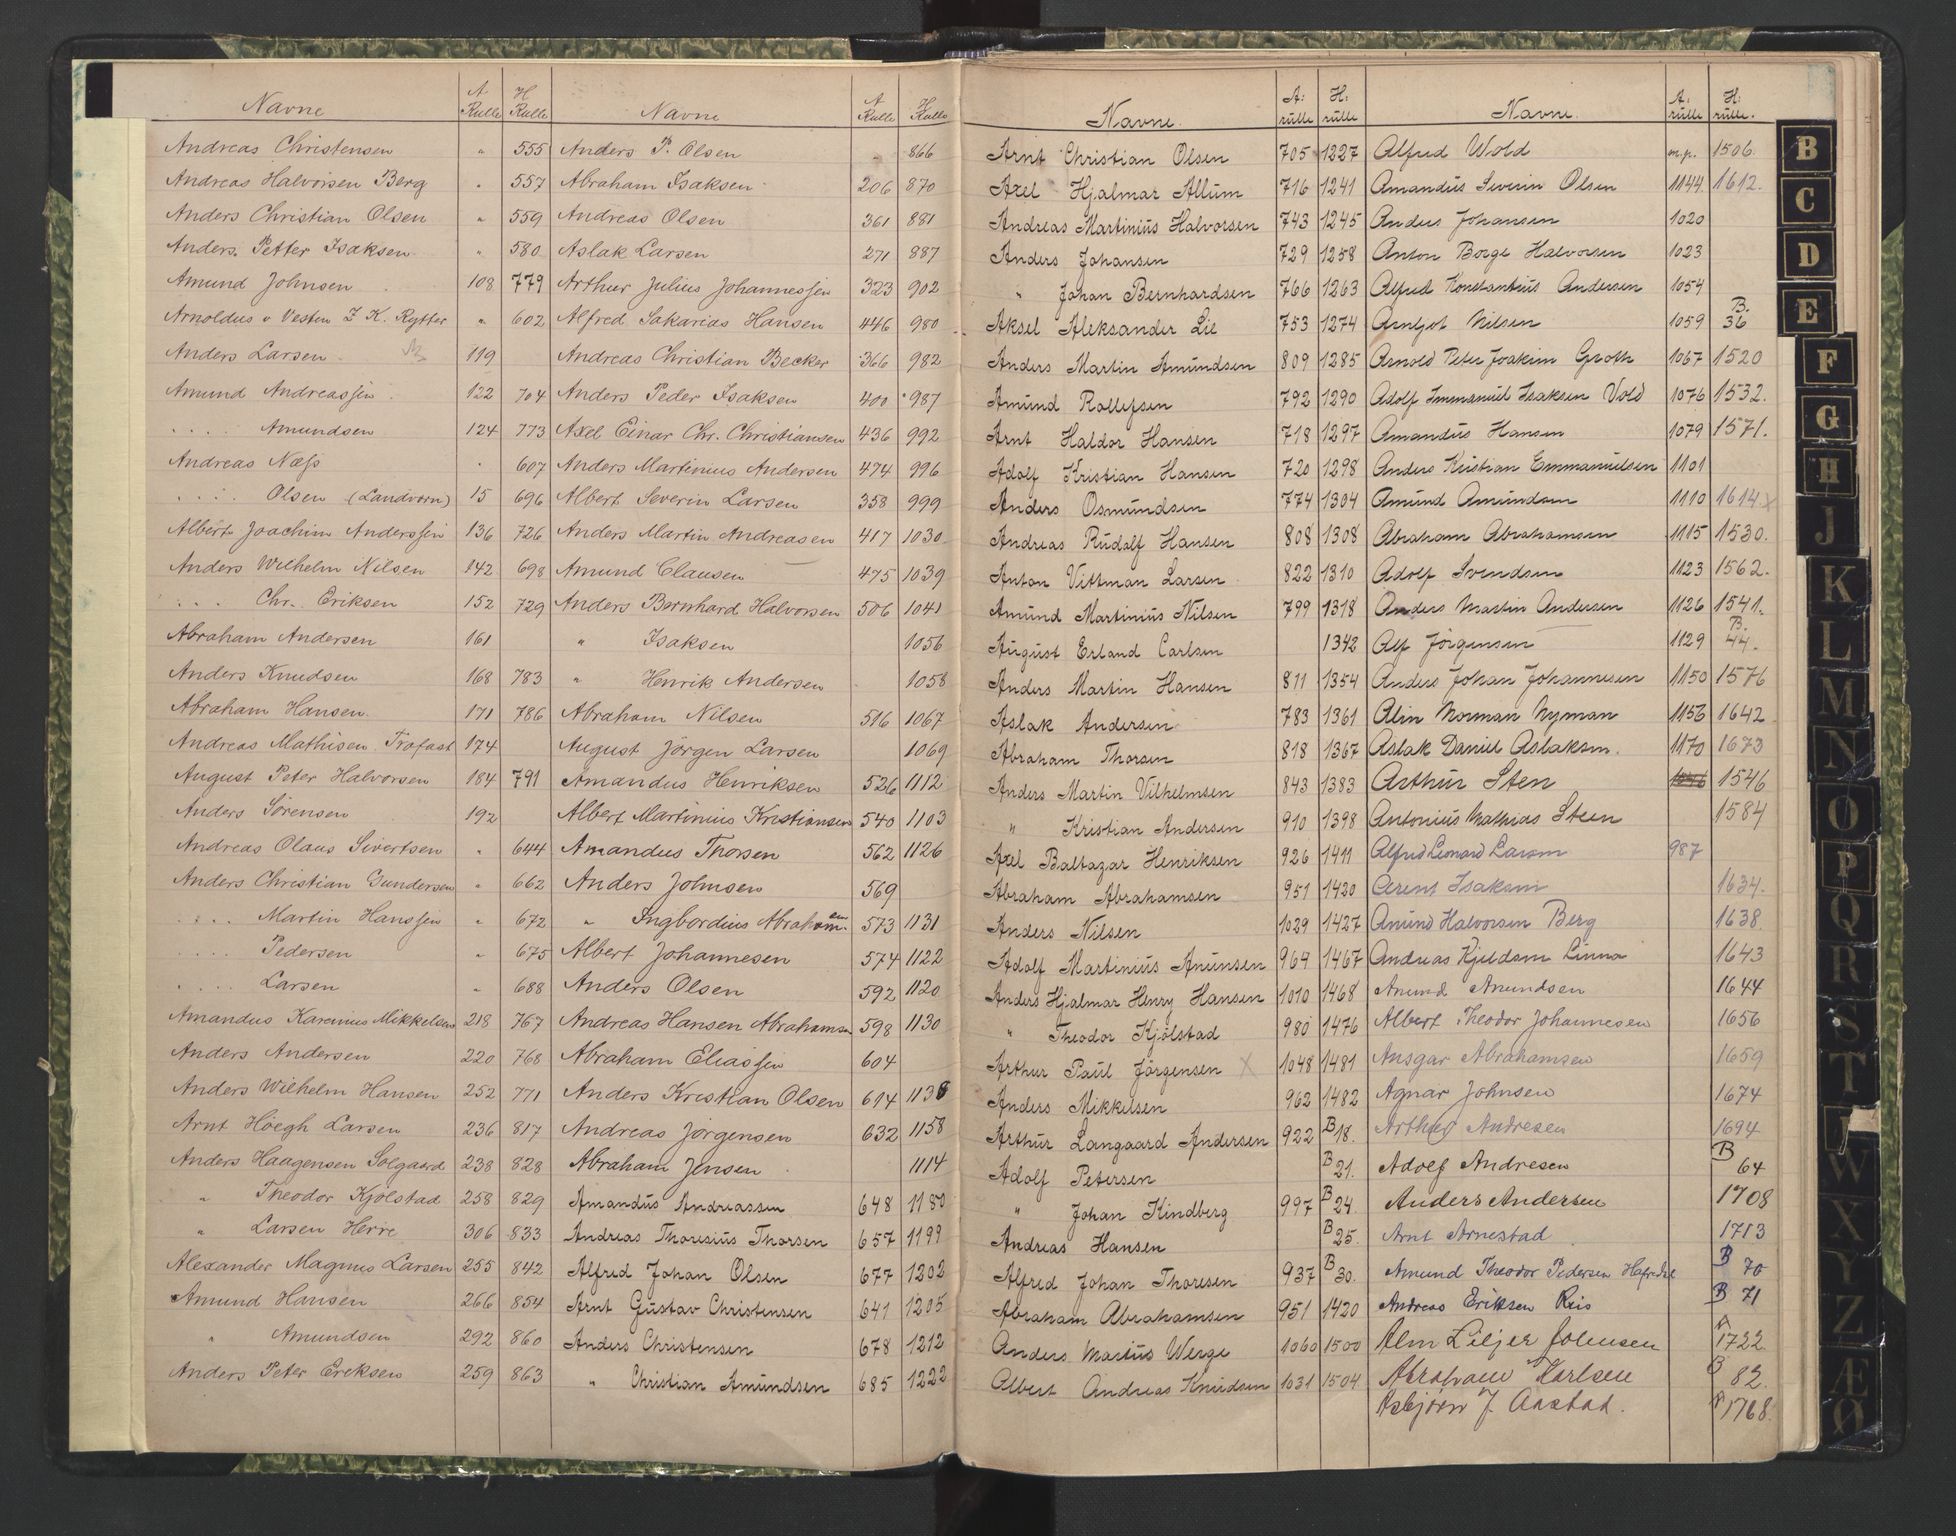 Navne A Rulle H Rulle
Andreas Christensen " 555
Andreas Halvorsen Berg " 557
Anders Christian Olsen " 559
Anders Petter Isaksen " 580
Amund Johnsen 108 779
Arnoldus v Vesten Z K. Rytter " 602
Anders Larsen 119
Amund Andreassen 122 704
" Amundsen 124 773
Andreas Næss 607
" Olsen (Landvorn) 15 696
Albert Joachim Anderssen 136 726
Anders Wilhelm Nilsen 142 698
" Chr. Eriksen 152 729
Abraham Andersen 161
Anders Knudsen 168 783
Abraham Hansen 171 786
Andreas Mathisen Trofast 174
August Peter Halvorsen 184 791
Anders Sörensen 192
Andreas Olaus Sivertsen " 644
Anders Christian Gundersen " 662
" Martin Hanssen " 672
" Pedersen " 675
" Larsen " 688
Amandus Karenius Mikkelsen 218 767
Anders Andersen 220 768
Anders Wilhelm Hansen 252 771
Arnt Höegh Larsen 236 817
Anders Haagensen Solgaard 238 828
" Theodor Kjölstad 258 829
" Larsen Herre 306 833
Alexander Magnus Larsen 255 842
Amund Hansen 266 854
" Amundsen 292 860
Anders Peter Ericksen 259 863
Navne A Rulle H Rulle
Anders P. Olsen " 866
Abraham Isaksen 206 870
Andreas Olsen 361 881
Aslak Larsen 271 887
Arthur Julius Johannessen 323 902
Alfred Sakarias Hansen 446 980
Andreas Christian Becker 366 982
Anders Peder Isaksen 400 987
Axel Einar Chr. Christiansen 436 992
Anders Martinius Andersen 474 996
Albert Severin Larsen 358 999
Anders Martin Andreasen 417 1030
Amund Clausen 475 1039
Anders Bernhard Halvorsen 506 1041
" Isaksen 1056
" Henrik Andersen 1058
Abraham Nilsen 516 1067
August Jörgen Larsen 1069
Amandus Henriksen 526 1112
Albert Martinius Kristiansen 540 1103
Amandus Thorsen 562 1126
Anders Johnsen 569
" Ingbordius Abrahamsen 573 1131
Albert Johannesen 574 1122
Anders Olsen 592 1120
Andreas Hansen Abrahamsen 598 1130
Abraham Eliassen 604
Anders Kristian Olsen 614 1138
Andreas Jörgensen 632 1158
Abraham Jensen 1114
Amandus Andreassen 648 1180
Andreas Thoresius Thorsen 657 1199
Alfred Johan Olsen 677 1202
Arnt Gustav Christensen 641 1205
Anders Christensen 678 1212
" Christian Amundsen 685 1222
Navne. A: rulle H: rulle
Arnt Christian Olsen 705 1227
Axel Hjalmar Allum 716 1241
Andreas Martinius Halvorsen 743 1245
Anders Johansen 729 1258
" Johan Bernhardsen 766 1263
Aksel Aleksander Lie 753 1274
Anders Martin Amundsen 809 1285
Amund Rollefsen 792 1290
Arnt Haldor Hansen 718 1297
Adolf Kristian Hansen 720 1298
Anders Osmundsen 774 1304
Andreas Rudolf Hansen 808 1308
Anton Vittman Larsen 822 1310
Amund Martinius Nilsen 799 1318
August Erland Carlsen 1342
Anders Martin Hansen 811 1354
Aslak Andersen 783 1361
Abraham Thorsen 818 1367
Anders Martin Vilhelmsen 843 1383
" Kristian Andersen 910 1398
Axel Baltazar Henriksen 926 1411
Abraham Abrahamsen 951 1420
Anders Nilsen 1029 1427
Adolf Martinius Anunsen 964 1467
Anders Hjalmar Henry Hansen 1010 1468
" Theodor Kjölstad 980 1476
Arthur Paul Jörgensen X 1048 1481
Anders Mikkelsen 962 1482
Arthur Langaard Andersen 922 B 18.
Adolf Petersen B 21.
" Johan Kindberg 997 B 24.
Andreas Hansen B 25.
Alfred Johan Thoresen 937 B 30.
Abraham Abrahamsen 951 1420
Anders Martius Werge 1060 1500
Albert Andreas Knudsen 1031 1504
Navne. A: rulle H: rulle.
Alfred Wold m.p. 1506.
Amandus Severin Olsen 1144 1612.
Anders Johansen 1020
Anton Borge Halvorsen 1023
Alfred Konstantius Andersen 1054
Arnljot Nilsen 1059 B. 36
Arnold Peter Joakim Groth 1067 1520
Adolf Immanuel Isaksen Vold 1076 1532.
Amandus Hansen 1079 1571.
Anders Kristian Emmanuelsen 1101
Amund Amundsen 1110 1614 x
Abraham Abrahamsen 1115 1530.
Adolf Svendsen 1123 1562.
Anders Martin Andersen 1126 1541.
Alf Jörgensen 1129 B. 44.
Anders Johan Johannesen 1150 1576
Alin Norman Nyman 1156 1642
Aslak Daniel Aslaksen. 1170 1673
Arthur Sten 1546
Antonius Mathias Steen 1584
Alfred Leonard Larsen 987
Arent Isaksen 1634.
Amund Halvorsen Berg 1638.
Andreas Kjeldsen Linna 1643
Amund Amundsen 1644
Albert Theodor Johannesen 1656
Ansgar Abrahamsen 1659
Agnar Johnsen 1674
Arthur Andresen 1694
Adolf Andresen B 64
Anders Andersen 1708
Arnt Arnestad 1713
Amund Theodor Pedersen B 70
Andreas Eriksen Ris B 71
Alm Liljer Johnsen A 1722
Abraham Karlsen B 82.
Asbjörn J. Aastad. A 1768.
B
C
D
E
F
G
H
J
K
L
M
N
O
P
Q
R
S
T
W
X
Y
Z
Æ
Ø